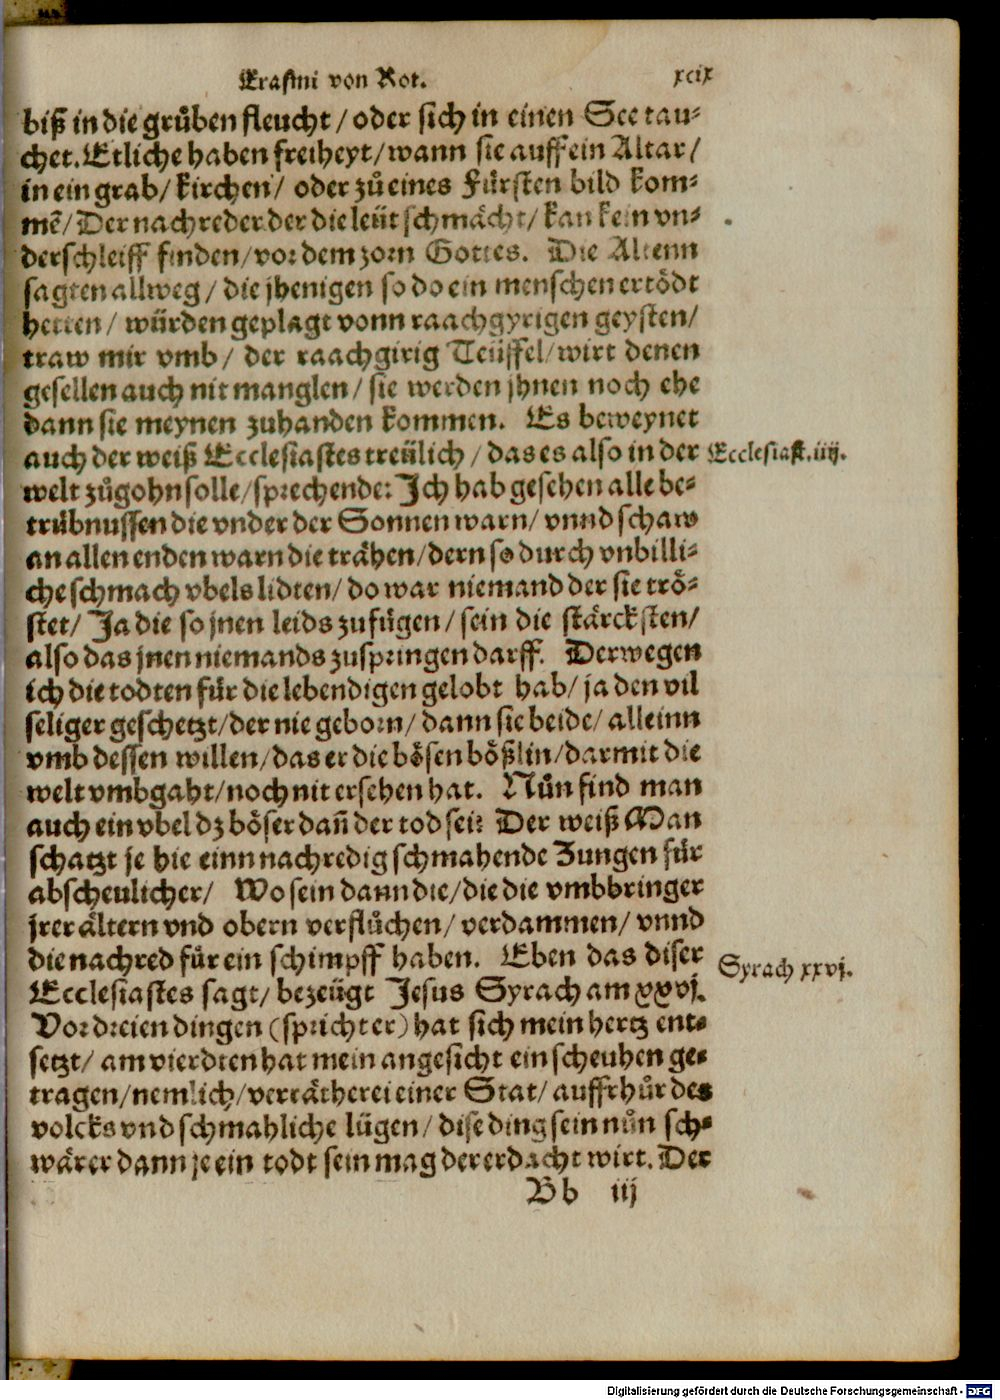 Erasmi von Rot. xcix
biß in die grůben fleucht / oder sich in einen See tau⸗
chet. Etliche haben freiheyt / wann sie auff ein Altar /
in ein grab / kirchen / oder zů eines Fürsten bild kom⸗
mẽ / Der nachreder der die leüt schmächt / kan kein vn⸗
derschleiff finden / vor dem zorn Gottes. Die Altenn
sagten allweg / die jhenigen so do ein menschen ertödt
hetten / würden geplagt vonn raachgyrigen geysten /
traw mir vmb / der raachgirig Teüffel / wirt denen
gesellen auch nit manglen / sie werden jhnen noch ehe
dann sie meynen zuhanden kommen. Es beweynet
auch der weiß Ecclesiastes treülich / das es also in der
Ecclesiast. iiij.
welt zůgohn solle / sprechende: Ich hab gesehen alle be⸗
trübnussen die vnder der Sonnen warn / vnnd schaw
an allen enden warn die trähen / dern so durch vnbilli⸗
che schmach vbels lidten / do war niemand der sie trö⸗
stet / Ja die so jnen leids zufügen / sein die stärcksten /
also das jnen niemands zuspringen darff. Derwegen
ich die todten für die lebendigen gelobt hab / ja den vil
seliger geschetzt / der nie geborn / dann sie beide / alleinn
vmb dessen willen / das er die bösen bößlin / darmit die
welt vmbgaht / noch nit ersehen hat. Nůn find man
auch ein vbel dz böser dañ der tod sei? Der weiß Man
schatzt je hie einn nachredig schmahende Zungen für
abscheulicher / Wo sein dann die / die die vmbbringer
jrer ältern vnd obern verflůchen / verdammen / vnnd
die nachred für ein schimpff haben. Eben das diser
Ecclesiastes sagt / bezeügt Jesus Syrach am xxvj.
Syrach xxvj.
Vor dreien dingen (spricht er) hat sich mein hertz ent⸗
setzt / am vierdten hat mein angesicht ein scheuhen ge⸗
tragen / nemlich / verrätherei einer Stat / auffrhůr des
volcks vnd schmahliche lügen / dise ding sein nůn sch⸗
wärer dann je ein todt sein mag der erdacht wirt. Der
Bb iij
Digitalisierung gefördert durch die Deutsche Forschungsgemeinschaft - DFG